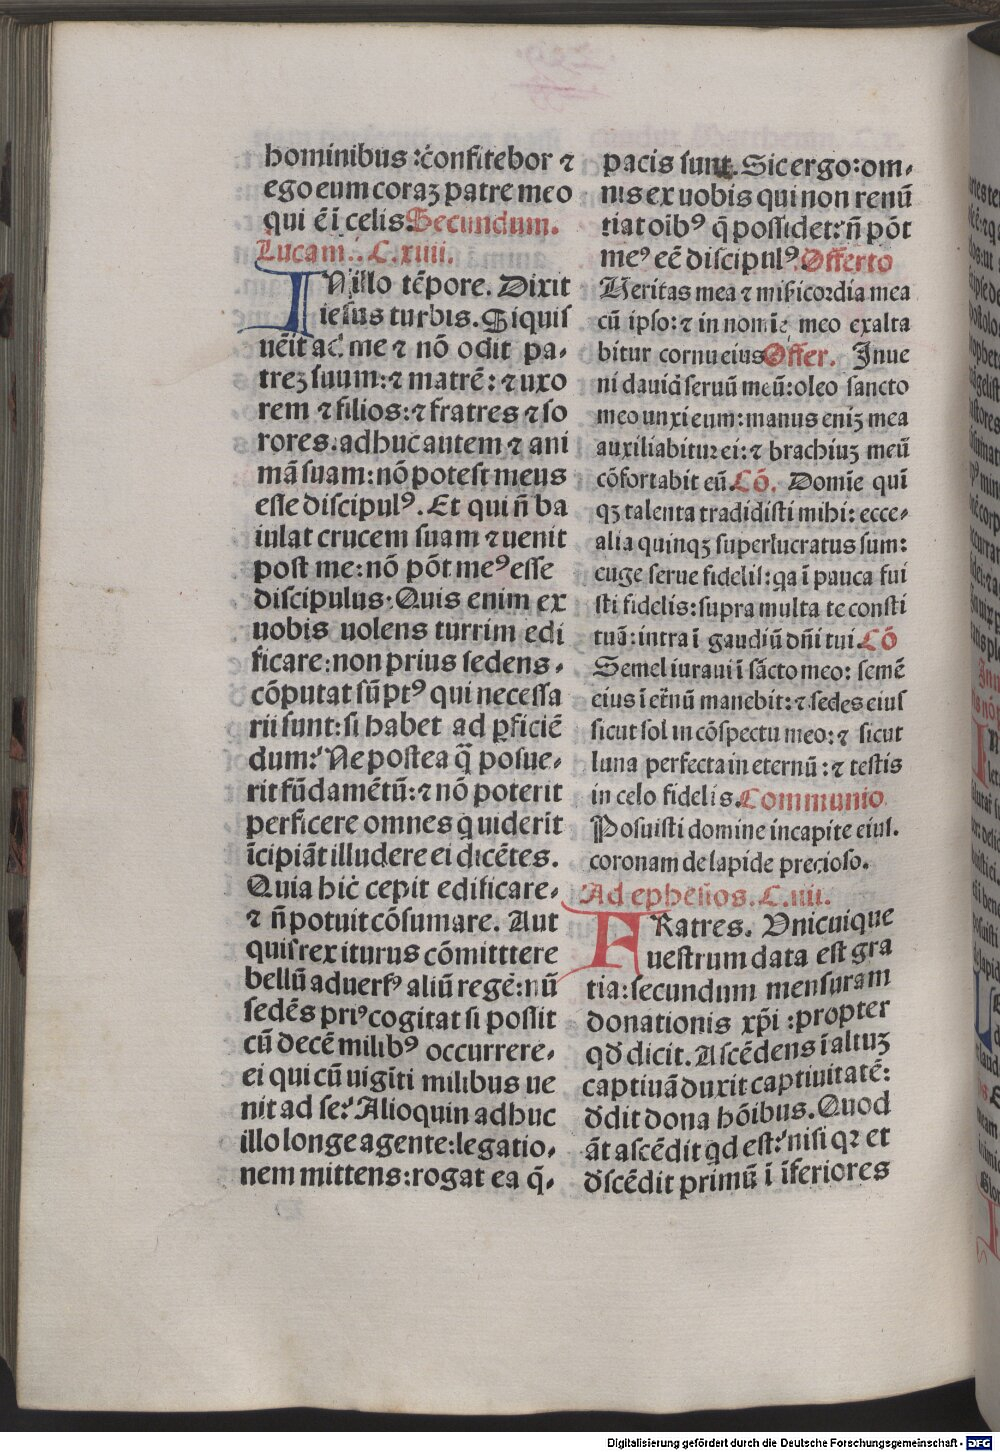 hominibus : cōfitebor ⁊
ego eum coraꝫ patre meo
qui ē ī celis. Secundum.
Lucam. C. xiiii.
IN illo tēpore. Dixit
iesus turbis. Si quis
uēit ad me ⁊ nō odit pa,
treꝫ suum: ⁊ matrē: ⁊ uxo
rem ⁊ filios: ⁊ fratres ⁊ so
rores. adhuc autem ⁊ ani
mā suam: nō potest meus
esse discipulꝰ. Et qui n̄ ba
iulat crucem suam ⁊ uenit
post me: nō pōt meꝰ esse
discipulus. Quis enim ex
uobis uolens turrim edi
ficare: non prius sedens,
cōputat sūptꝰ qui necessa
rii sunt: si habet ad ꝑficiē
dum? Ne postea q̄ posue,
rit fūdamētū: ⁊ nō poterit
perficere omnes q uiderīt
īcipiāt illudere ei dicētes.
Quia hic cepit edificare,
⁊ n̄ potuit cōsumare. Aut
quis rex iturus cōmitttere
bellū aduersꝰ aliū regē: nū
sedēs priꝰ cogitat si possit
cū decē milibꝰ occurrere,
ei qui cū uigīti milibus ue
nit ad se? Alioquin adhuc
illo longe agente: legatio,
nem mittens: rogat ea q̄,
pacis sunt. Sic ergo: om,
nis ex uobis qui non renū
tiat oibꝰ q̄ possidet: n̄ pōt
meꝰ eē discipulꝰ. Offerto
Veritas mea ⁊ mīsicordia mea
cū ipso: ⁊ in nomīe meo exalta
bitur cornu eius Offer. Inue
ni dauid seruū meū: oleo sancto
meo unxi eum: manus eniꝫ mea
auxiliabitur ei: ⁊ brachiuꝫ meū
cōfortabit eū. Cō. Domīe quī
qꝫ talenta tradidisti mihi: ecce,
alia quinqꝫ superlucratus sum:
euge serue fidelis: qa ī pauca fui
sti fidelis: supra multa te consti
tuā: intra ī gaudiū dn̄i tui. Cō
Semel iuraui ī sācto meo: semē
eius ī etnū manebit: ⁊ sedes eius
sicut sol in cōspectu meo: ⁊ sicut
luna perfecta in eternū: ⁊ testis
in celo fidelis. Communio
Posuisti domine in capite eius.
coronam de lapide precioso.
Ad ephesios. C. iiii.
FRatres. Vnicuique
uestrum data est gra
tia: secundum mensuram
donationis xp̄i: propter
qd̄ dicit. Ascēdens ī altuꝫ
captiuā duxit captiuitatē:
d̄dit dona hōibus. Quod
āt ascēdit qd est? nisi qꝛ et
d̄scēdit primū ī īferiores
Digitalisierung gefördert durch die Deutsche Forschungsgemeinschaft - DFG